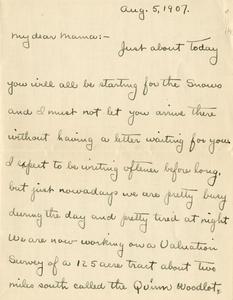 Aug. 5, 1907.
My dear Mama:-
Just about today
you will all be starting for the Snows
and I must not let you arrive there
without having a letter waiting for you.
I expect to be writing oftener before long,
but just nowadays we are pretty busy
during the day and pretty tired at night
We are now working on a Valuation
Survey of a 125 acre tract about two
miles south called the Quinn Woodlot,